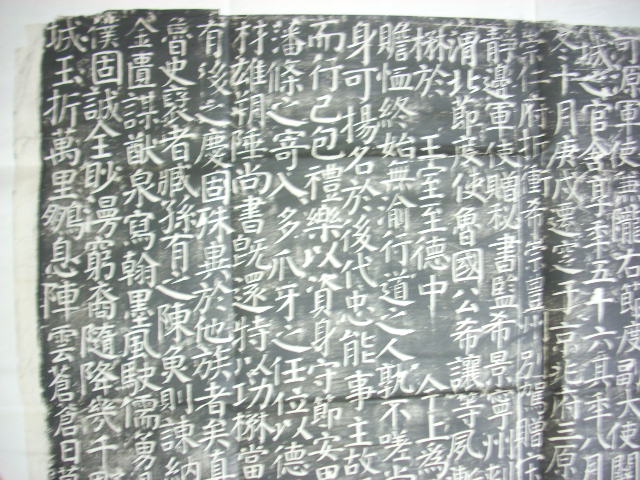 可原軍使兼隴右節度副大使關
城之官舍享年五十六其年八月
冬十月庚戌還窆于京兆府三原
崇仁府折衝希崇豐州別駕贈宋
靜邊軍使贈秘書監希景寧州刺
渭北節度使魯國公希讓等夙漸
楙於 王室至德中 今上為
贍恤終始無渝行道之人孰不嗟尚
身可揚名於後代忠能事主故
而行己包禮樂以資身守節安
潘條之寄入多爪牙之任位以德
材雄朔陲尚書旣還特以功楙當
有後之慶固殊異於他族者矣真
魯史裒者臧孫有之陳奐則諫納
金匱謀猷泉寫翰墨風駛儒勇
僕固誠全眇漫窮裔隨降幾千
城玉折萬里鵷息陣雲蒼蒼日